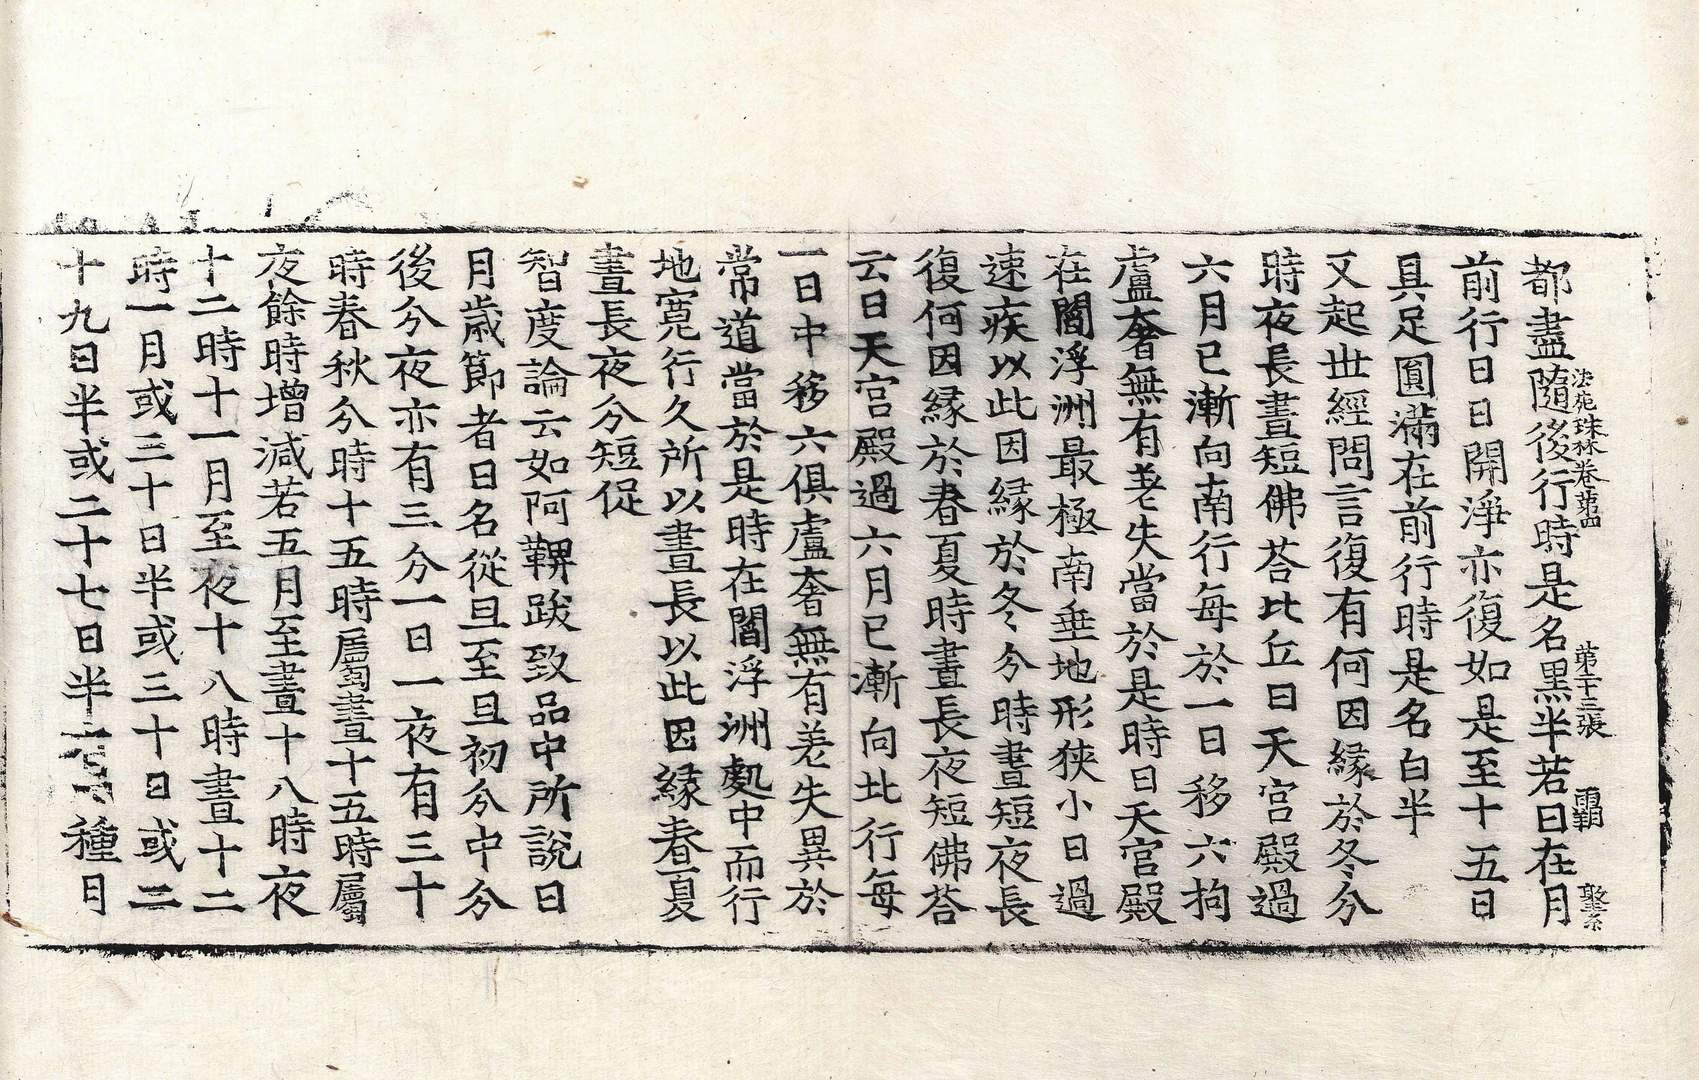 法苑珠林卷第四 第十三張 覇 聖系
都盡隨後行時是名黒半若日在月
前行日日開淨亦復如是至十五日
具足圓滿在前行時是名白半
又起世經問言復有何因縁於冬分
時夜長晝短佛荅比丘日天宮殿過
六月已漸向南行每於一日移六拘
盧奢無有差失當於是時日天宮殿
在閻浮洲最極南垂地形狹小日過
速疾以此因縁於冬分時晝短夜長
復何因縁於春夏時晝長夜短佛荅
云日天宮殿過六月已漸向北行每
一日中移六俱盧奢無有差失異於
常道當於是時在閻浮洲處中而行
地寛行久所以晝長以此因縁春夏
晝長夜分短促
智度論云如阿鞞跋致品中所說日
月歲節者日名從旦至旦初分中分
後分夜亦有三分一日一夜有三十
時春秋分時十五時屬晝十五時屬
夜餘時增減若五月至晝十八時夜
十二時十一月至夜十八時晝十二
時一月或三十日半或三十日或二
十九日半或二十七日半種月